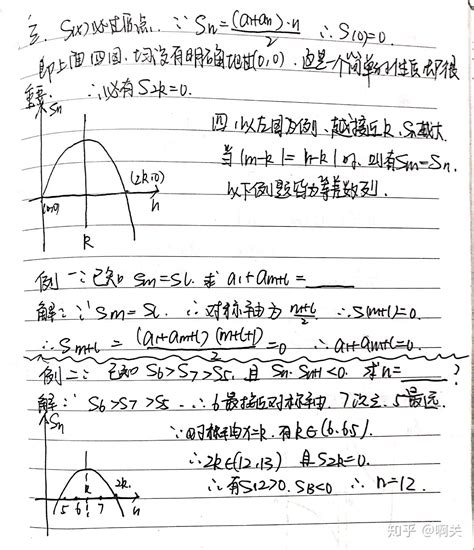 三. S(x)必过原点. ∵ Sn=(a1+an)·n/2 ∴S(0)=0.
即上面四图,均没有明确地过(0,0).这是一个简单的性质却很
重要. ∴必有S2k=0.
Sn
(0,0)
(2k,0)
n
k
四. 以左图为例,越接近k,Sn越大
当|m-k|=|n-k|时,则有Sm=Sn.
以下例题皆为等差数列.
例一:已知 Sm=Sl. 求 a1+am+l=____
解:∵Sm=Sl. ∴对称轴为 m+l/2 ∴S(m+l)=0.
∴Sm+l=(a1+am+l)(m+l)/2=0 ∴a1+am+l=0.
例二:已知 S6>S7>S5,且 Sn·Sn+1<0. 求n=____?
解:∵S6>S7>S5.∴6最接近对称轴,7次之,5最远.
∴对称轴x=k,有k∈(6,6.5).
∴2k∈(12,13) 且S2k=0.
∴有S12>0.S13<0 ∴n=12.
Sn
k
2k
5 6 7
n
知乎 @啊关